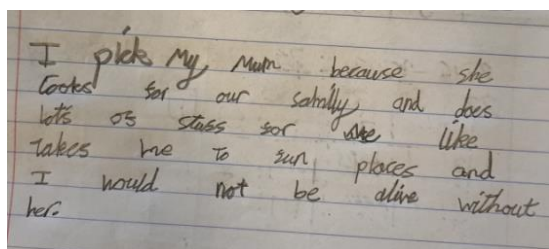 I pick my mum because she
cooks for our samily and does
lots os stuss sor me like
takes me to sun places and
I would not be alive without
her.